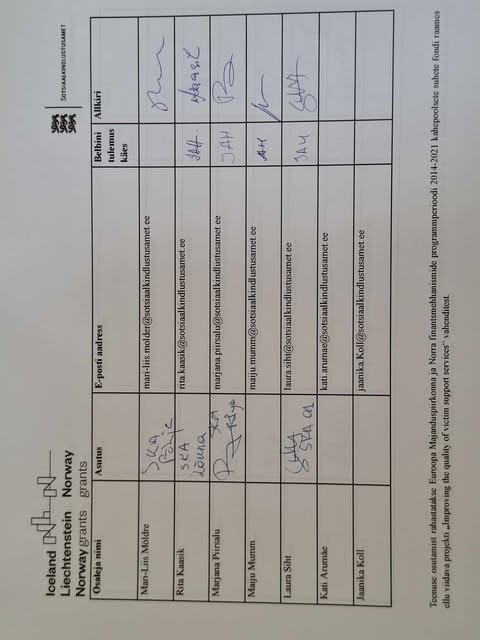 Iceland
Liechtenstein Norway
Norway grants grants
SOTSIAALKINDLUSTUSAMET
Osaleja nimi Asutus E-posti aadress Belbini tulemus käes Allkiri
Mari-Liis Möldre SKA Põhja mari-liis.molder@sotsiaalkindlustusamet.ee
Rita Kaasik SKA Lõuna rita.kaasik@sotsiaalkindlustusamet.ee JAH
Marjana Piirsalu SKA marjana.piirsalu@sotsiaalkindlustusamet.ee JAH
Maiju Mumm maiju.mumm@sotsiaalkindlustusamet.ee
Laura Siht SKA laura.siht@sotsiaalkindlustusamet.ee JAH
Kati Arumäe kati.arumae@sotsiaalkindlustusamet.ee
Jaanika Koll jaanika.Koll@sotsiaalkindlustusamet.ee
Teenuse osutamist rahastatakse Euroopa Majanduspiirkonna ja Norra finantsmehhanismide programmperioodi 2014-2021 kahepoolsete suhete fondi raames
ellu viidava projekti „Improving the quality of victim support services“ vahenditest.